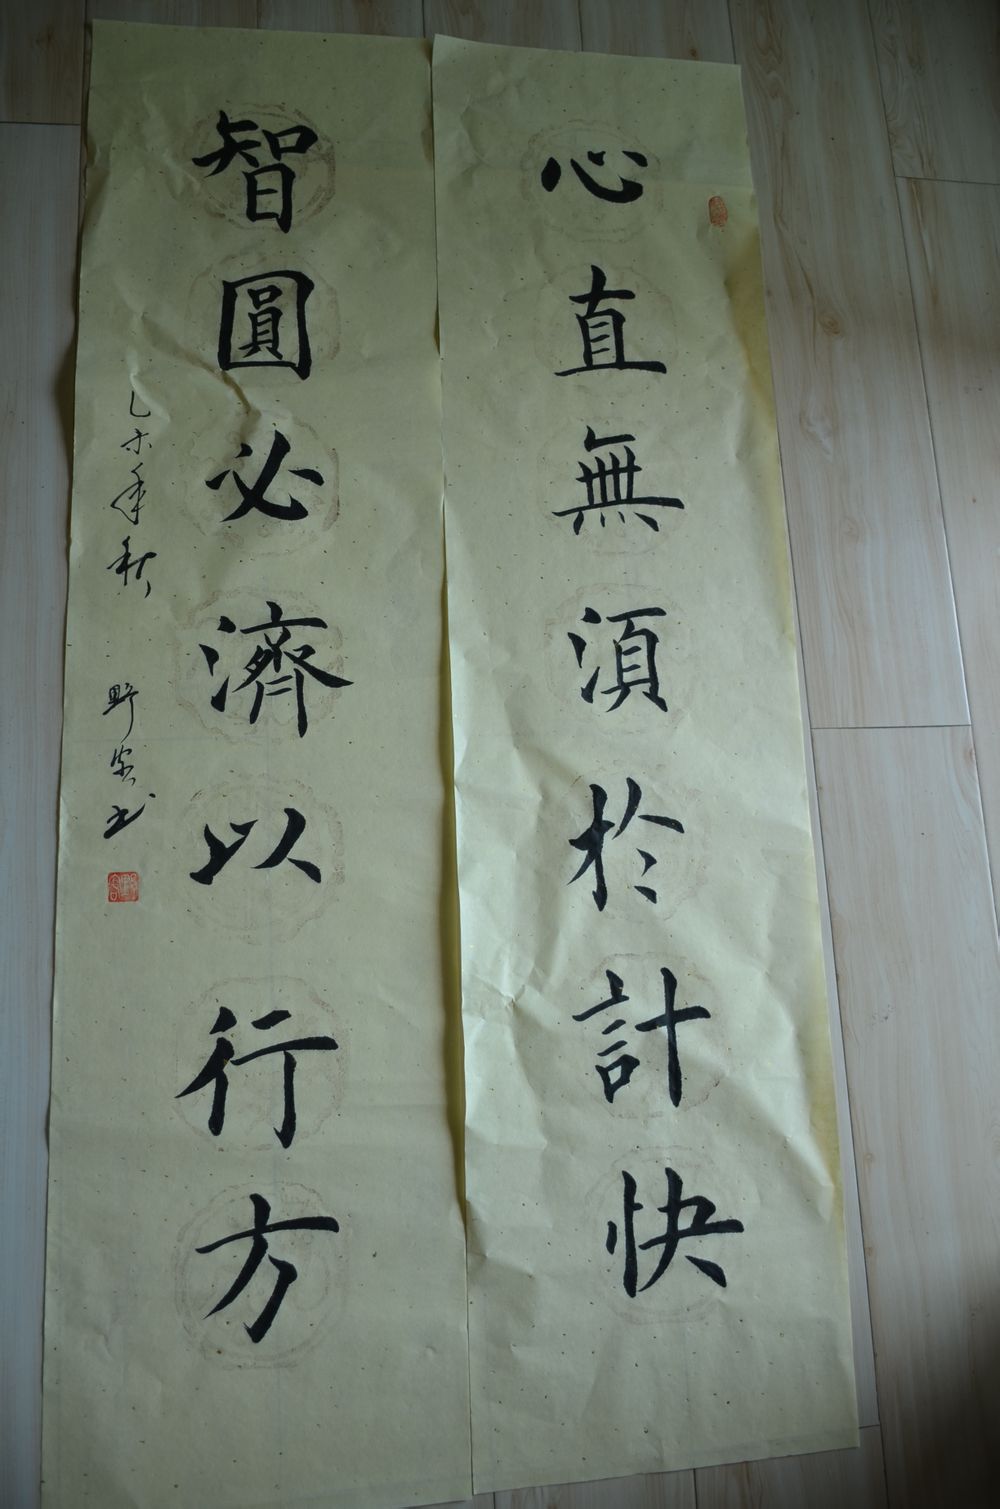 心直無須於計快
智圓必濟以行方
乙未年秋 野岩書